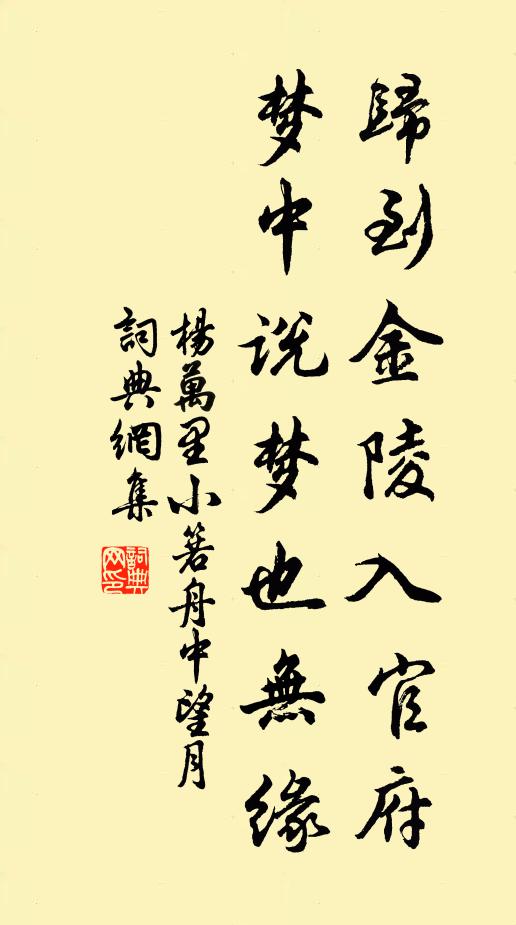 歸到金陵入官府
梦中说梦也無緣
楊萬里小箬舟中望月
詞典網集
詞典网印